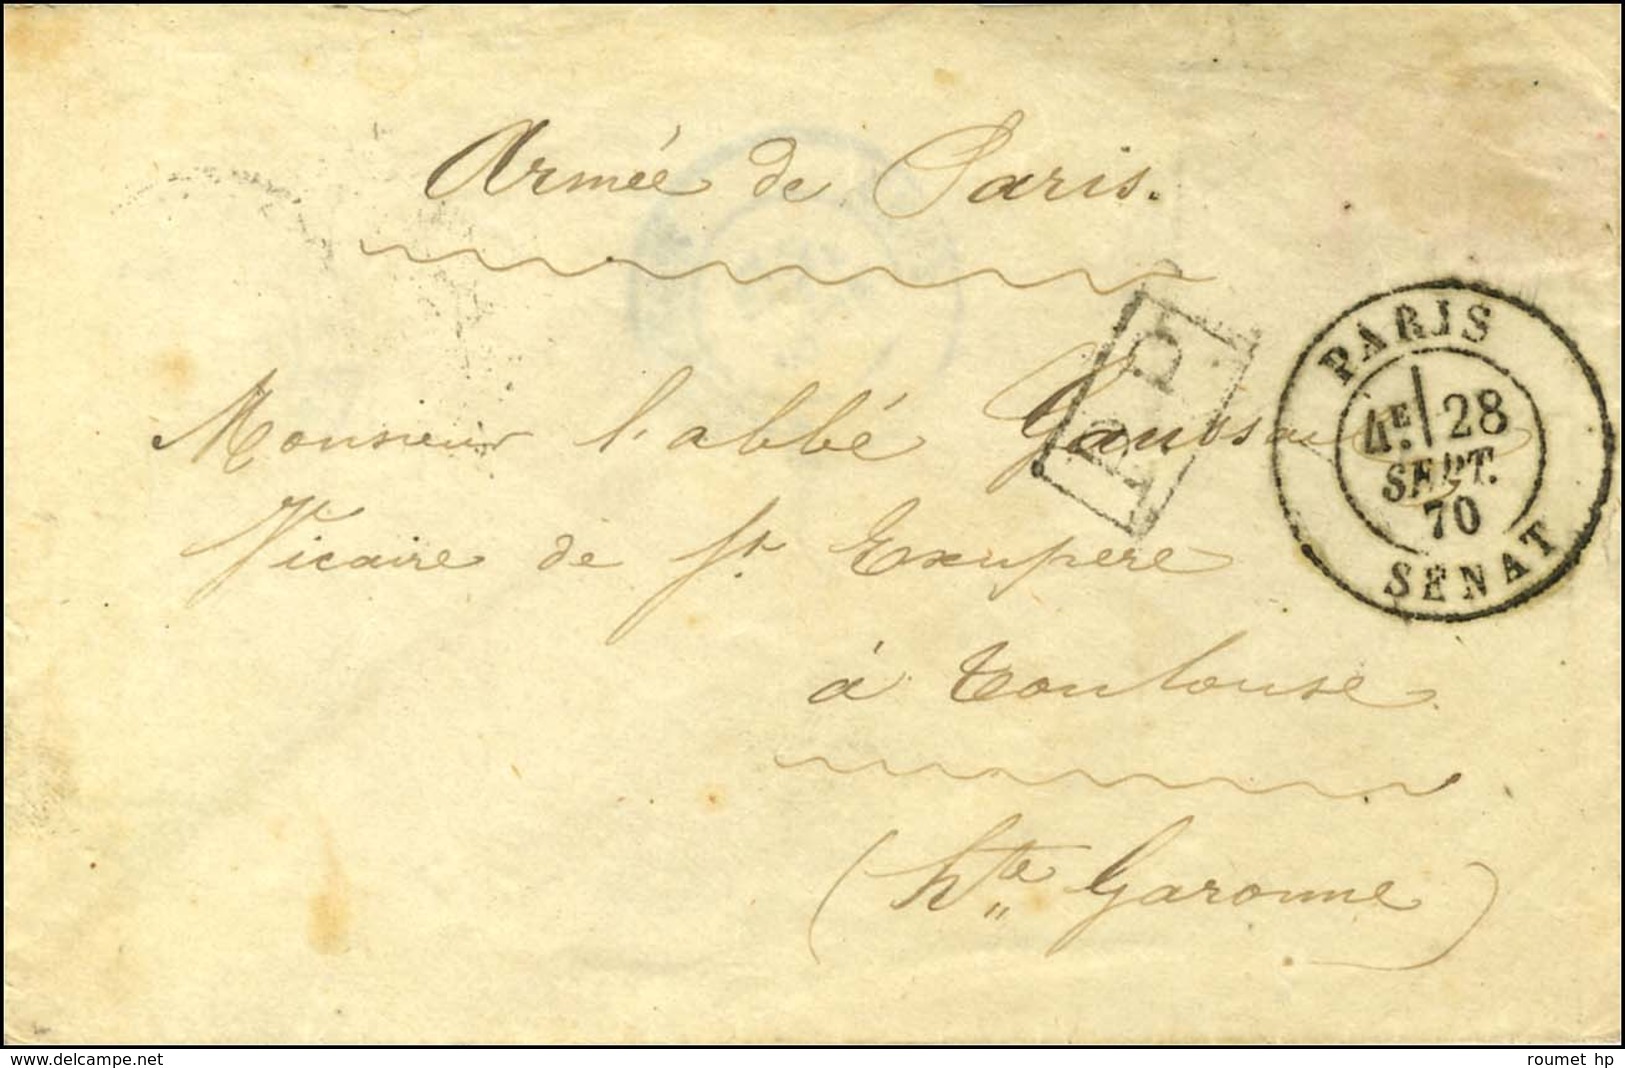 Armée de Paris.
P.P.
PARIS
4E. 28
SEPT.
70
SENAT
Monsieur l'abbé
Vicaire de St Exupere
à Toulouse
(hte Garonne)
www.delcampe.net
roumet hp